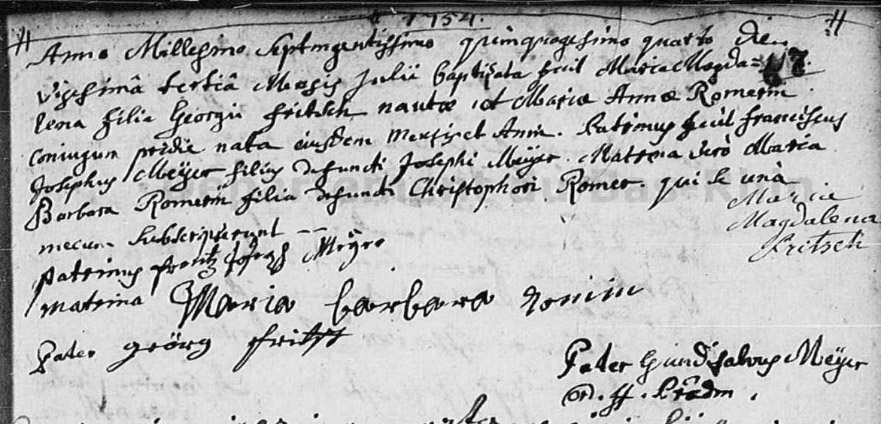 1754.
Anno Millesimo Septingentissimo quinquagesimo quarto die
Vigesimâ tertiâ Mensis Julii baptizata fuit Maria Magda=
lena filia Georgii Fritsch nautæ et Mariæ Annæ Romerin
Coniugum pridie nata eiusdem Mensis et Anni. Patrinus fuit Franciscus
Josephus Meÿer filius defuncti Josephi Meÿer. Matrina verò Maria
Barbara Romerin filia defuncti Christophori Romer. qui se unà
mecum Subscripserunt
Maria
Magdalena
Fritsch
patrinus frantz Joseph Meÿre
matrina Maria barbara
Pater geörg fritsch
Pater Gundisalvus Meÿer
ord. ff. Prædm.